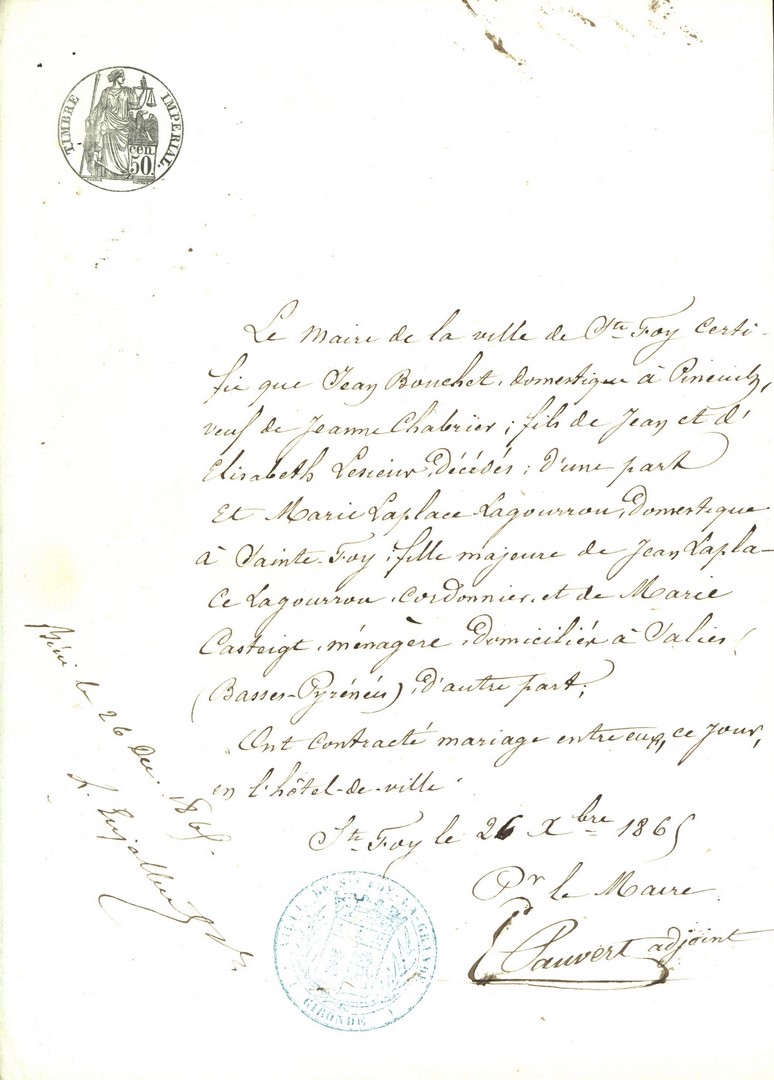 TIMBRE IMPERIAL.
cen.
50.
Le Maire de la ville de Ste Foy certi-
fie que Jean Bouchet, domestique à Pineuilh,
veuf de Jeanne Chabrier; fils de Jean et d'
Elisabeth Lesieur, Décédés; d'une part
Et Marie Laplace Lagourrou, Domestique
à Sainte-Foy, fille majeure de Jean Lapla-
ce Lagourrou, cordonnier, et de Marie
Casteigt, ménagère, Domiciliés à Salies
(Basses-Pyrénées), d'autre part;
Ont contracté mariage entre eux, ce jour,
en l'hôtel-de-ville
Ste Foy le 26 Xbre 1865
Pr le Maire
Pauvert adjoint
Béni le 26 Dec. 1865.
VILLE DE STE FOY-LA-GRANDE
GIRONDE